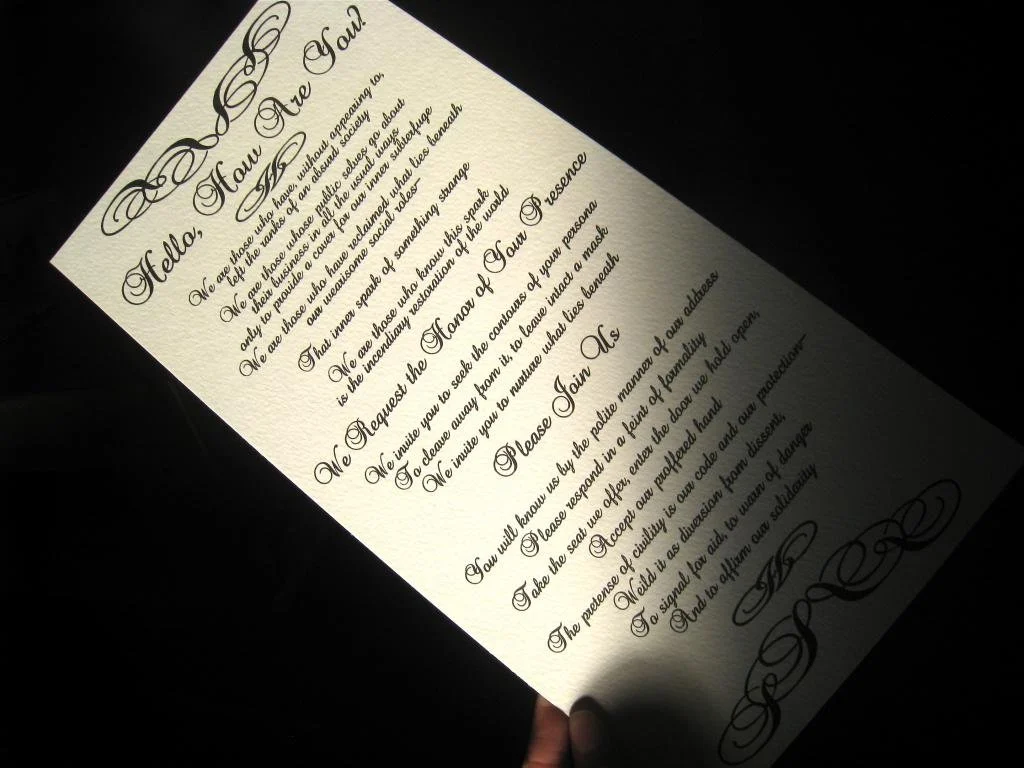 Hello, How Are You?
H
We are those who have, without appearing to,
left the ranks of an absurd society
We are those whose public selves go about
their business in all the usual ways
only to provide a cover for our inner subterfuge
We are those who have reclaimed what lies beneath
our wearisome social roles—
That inner spark of something strange
We are those who know this spark
is the incendiary restoration of the world
We Request the Honor of Your Presence
We invite you to seek the contours of your persona
To cleave away from it, to leave intact a mask
We invite you to nurture what lies beneath
Please Join Us
You will know us by the polite manner of our address
Please respond in a feint of formality
Take the seat we offer, enter the door we hold open,
Accept our proffered hand
The pretense of civility is our code and our protection—
Weild it as diversion from dissent,
To signal for aid, to warn of danger
And to affirm our solidarity
H